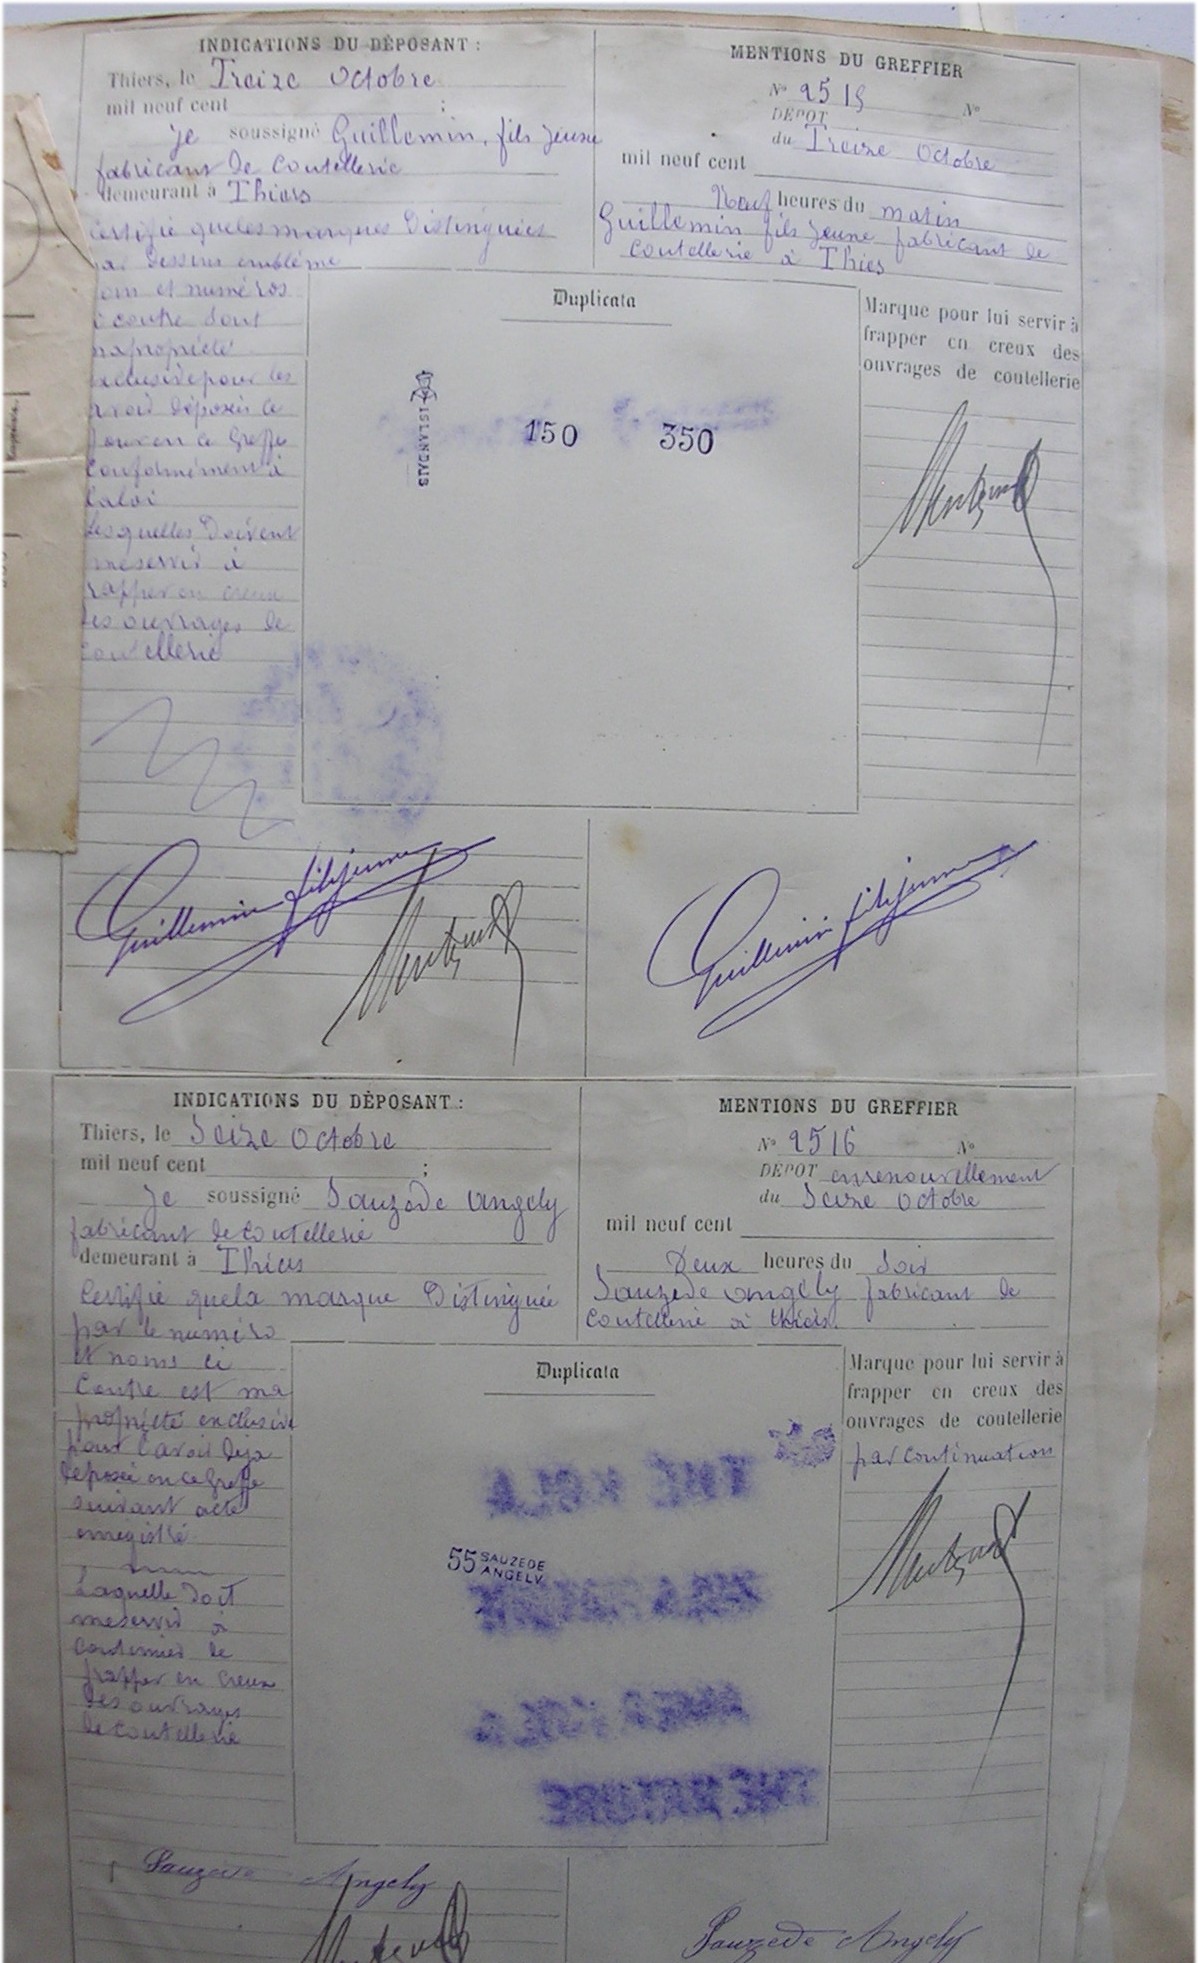 INDICATIONS DU DÉPOSANT :
Thiers, le Treize Octobre
mil neuf cent ;
Je soussigné Guillemin, fils jeune
fabricant de Coutellerie
demeurant à Thiers
Certifie que les marques Distinguées
par Dessins emblème
nom et numéros
ci contre sont
ma propriété
exclusive pour les
avoir déposées ce
jour en ce Greffe
Conformément à
la loi
Lesquelles Doivent
me servir à
frapper en creux
des ouvrages de
coutellerie
Guillemin fils jeune
MENTIONS DU GREFFIER
No 2515 No
DÉPOT
du Treize Octobre
mil neuf cent
Neuf heures du matin
Guillemin fils jeune fabricant de
Coutellerie à Thiers
Duplicata
ISLANDAIS
150 350
Marque pour lui servir à
frapper en creux des
ouvrages de coutellerie
Guillemin fils jeune
INDICATIONS DU DÉPOSANT :
Thiers, le Seize Octobre
mil neuf cent ;
Je soussigné Sauzede Angely
fabricant de coutellerie
demeurant à Thiers
Certifie que la marque Distinguée
par le numéro
et noms ci
Contre est ma
propriété exclusive
pour l'avoir déja
déposée en ce Greffe
suivant acte
enregistré
Laquelle doit
me servir à
Continuer de
frapper en creux
des ouvrages
de coutellerie
Sauzede Angely
MENTIONS DU GREFFIER
No 2516 No
DÉPOT en renouvellement
du Seize Octobre
mil neuf cent
Deux heures du Soir
Sauzede Angely fabricant de
Coutellerie à thiers.
Duplicata
THE KOLA
55 SAUZEDE
ANGELY
THE NATURE
Marque pour lui servir à
frapper en creux des
ouvrages de coutellerie
par continuation
Sauzede Angely